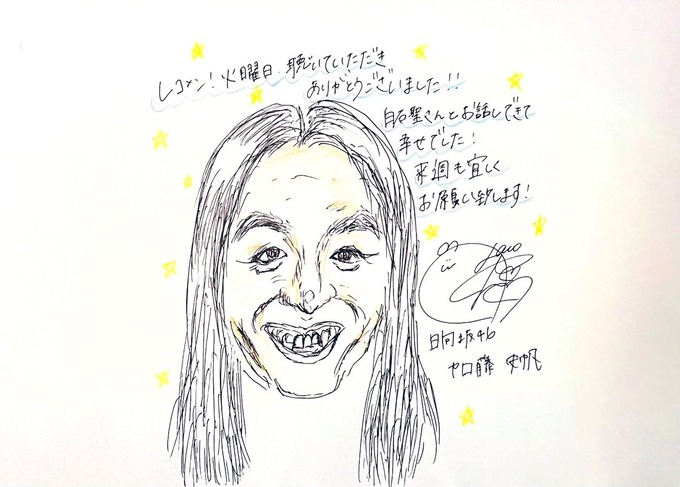 レコメン!火曜日 聴いていただき
ありがとうございました!!
白石聖さんとお話しできて
幸せでした!
来週も宜しく
お願い致します!
日向坂46
加藤 史帆